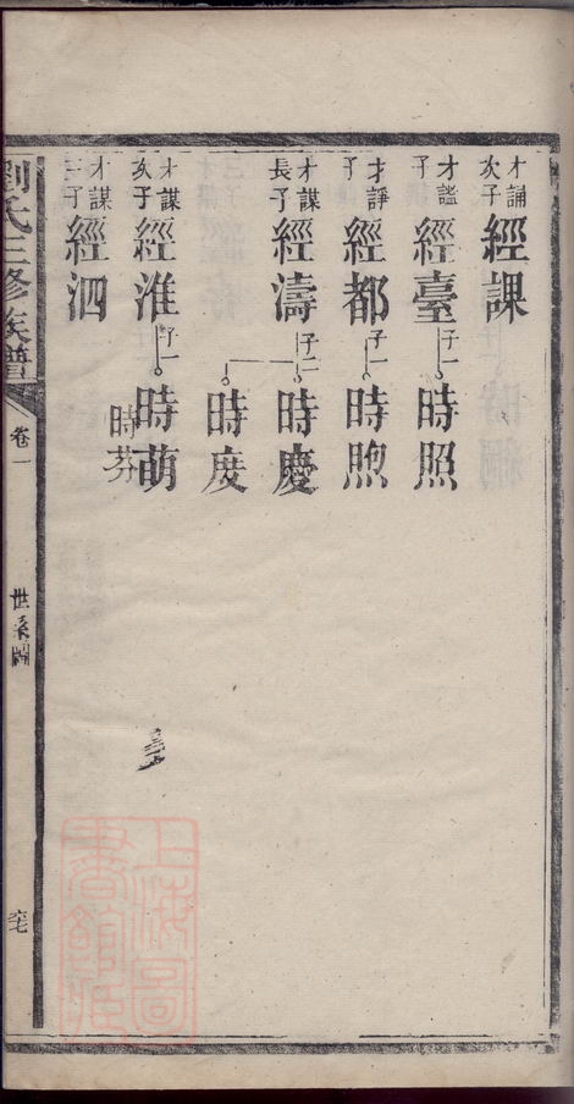 才誦次子 經課
才謐子 經臺 子一 時照
才諍子 經都 子一 時煦
才謀長子 經濤 子二 時慶
時度
才謀次子 經淮 子一 時萌
時芬
才謀三子 經泗
劉氏三修族譜 卷一 世系圖 六七
上海圖書館藏